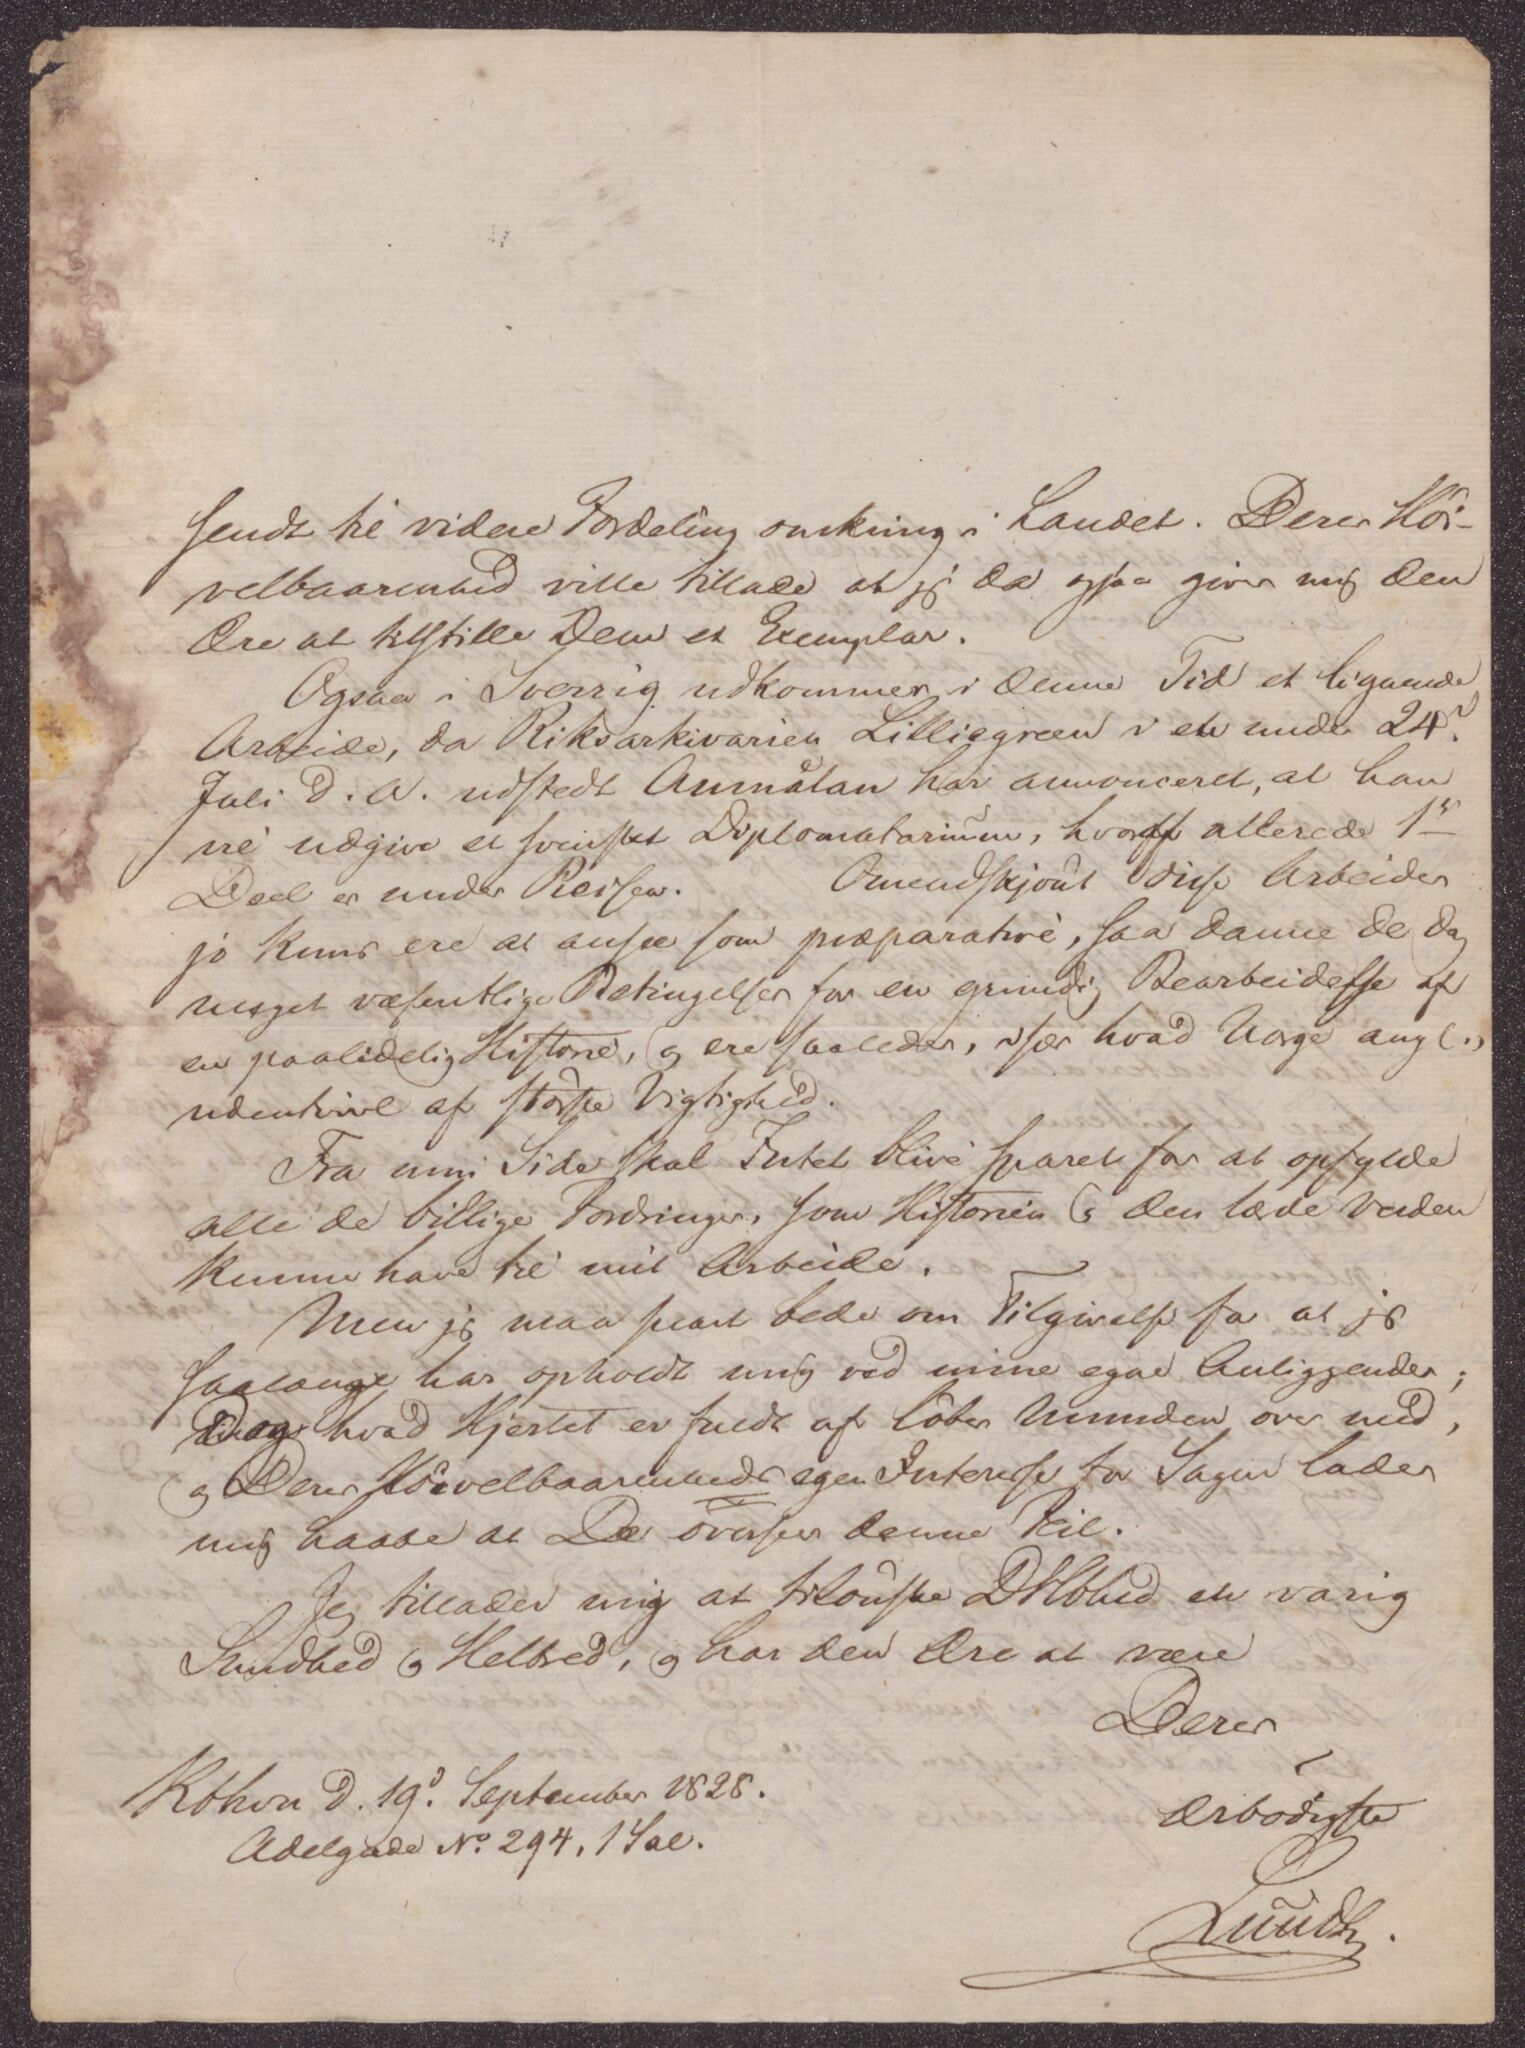 sendt til videre Fordeling omkring i Landet. Deres Höi-
velbaarenhed ville tillade at jeg da ogsaa giver mig den
Ære at tilstille Dem et Exemplar.
Ogsaa i Sverrig udkommer i denne Tid et lignende
Arbeide, da Riksarkivarien Lilliegreen i en under 24d
Juli d. A. udstedt Anmälan har annonceret, at han
vil udgive et svenskt Diplomatarium, hvoraf allerede 1ste
Deel er under Pressen. Omendskjönt disse Arbeider
jo kuns ere at ansee som præparative, saa danne de dog
meget væsentlige Betingelser for en grundig Bearbeidelse af
en paalidelig Historie, og ere saaledes, især hvad Norge angl.,
udentvivl af störste Vigtighed.
Fra min Side skal Intet blive sparet for at opfylde
alle de billige Fordringer, som Historien og den lærde Verden
kunne have til mit Arbeide.
Men jeg maa snart bede om Tilgivelse for at jeg
saalænge har opholdt mig ved mine egne Anliggender;
Dog hvad Hjertet er fuldt af löber Munden over med,
og Deres Höivelbaarenheds egen Interesse for Sagen lader
mig haabe at De overseer denne Feil.
Jeg tillader mig at tilönske DHbhed en varig
Sundhed og Helbred, og har den Ære at være
Deres
Kbhvn d. 19d September 1828.
ærbödigste
Adelgade No 294, 1 Sal.
Lundh.